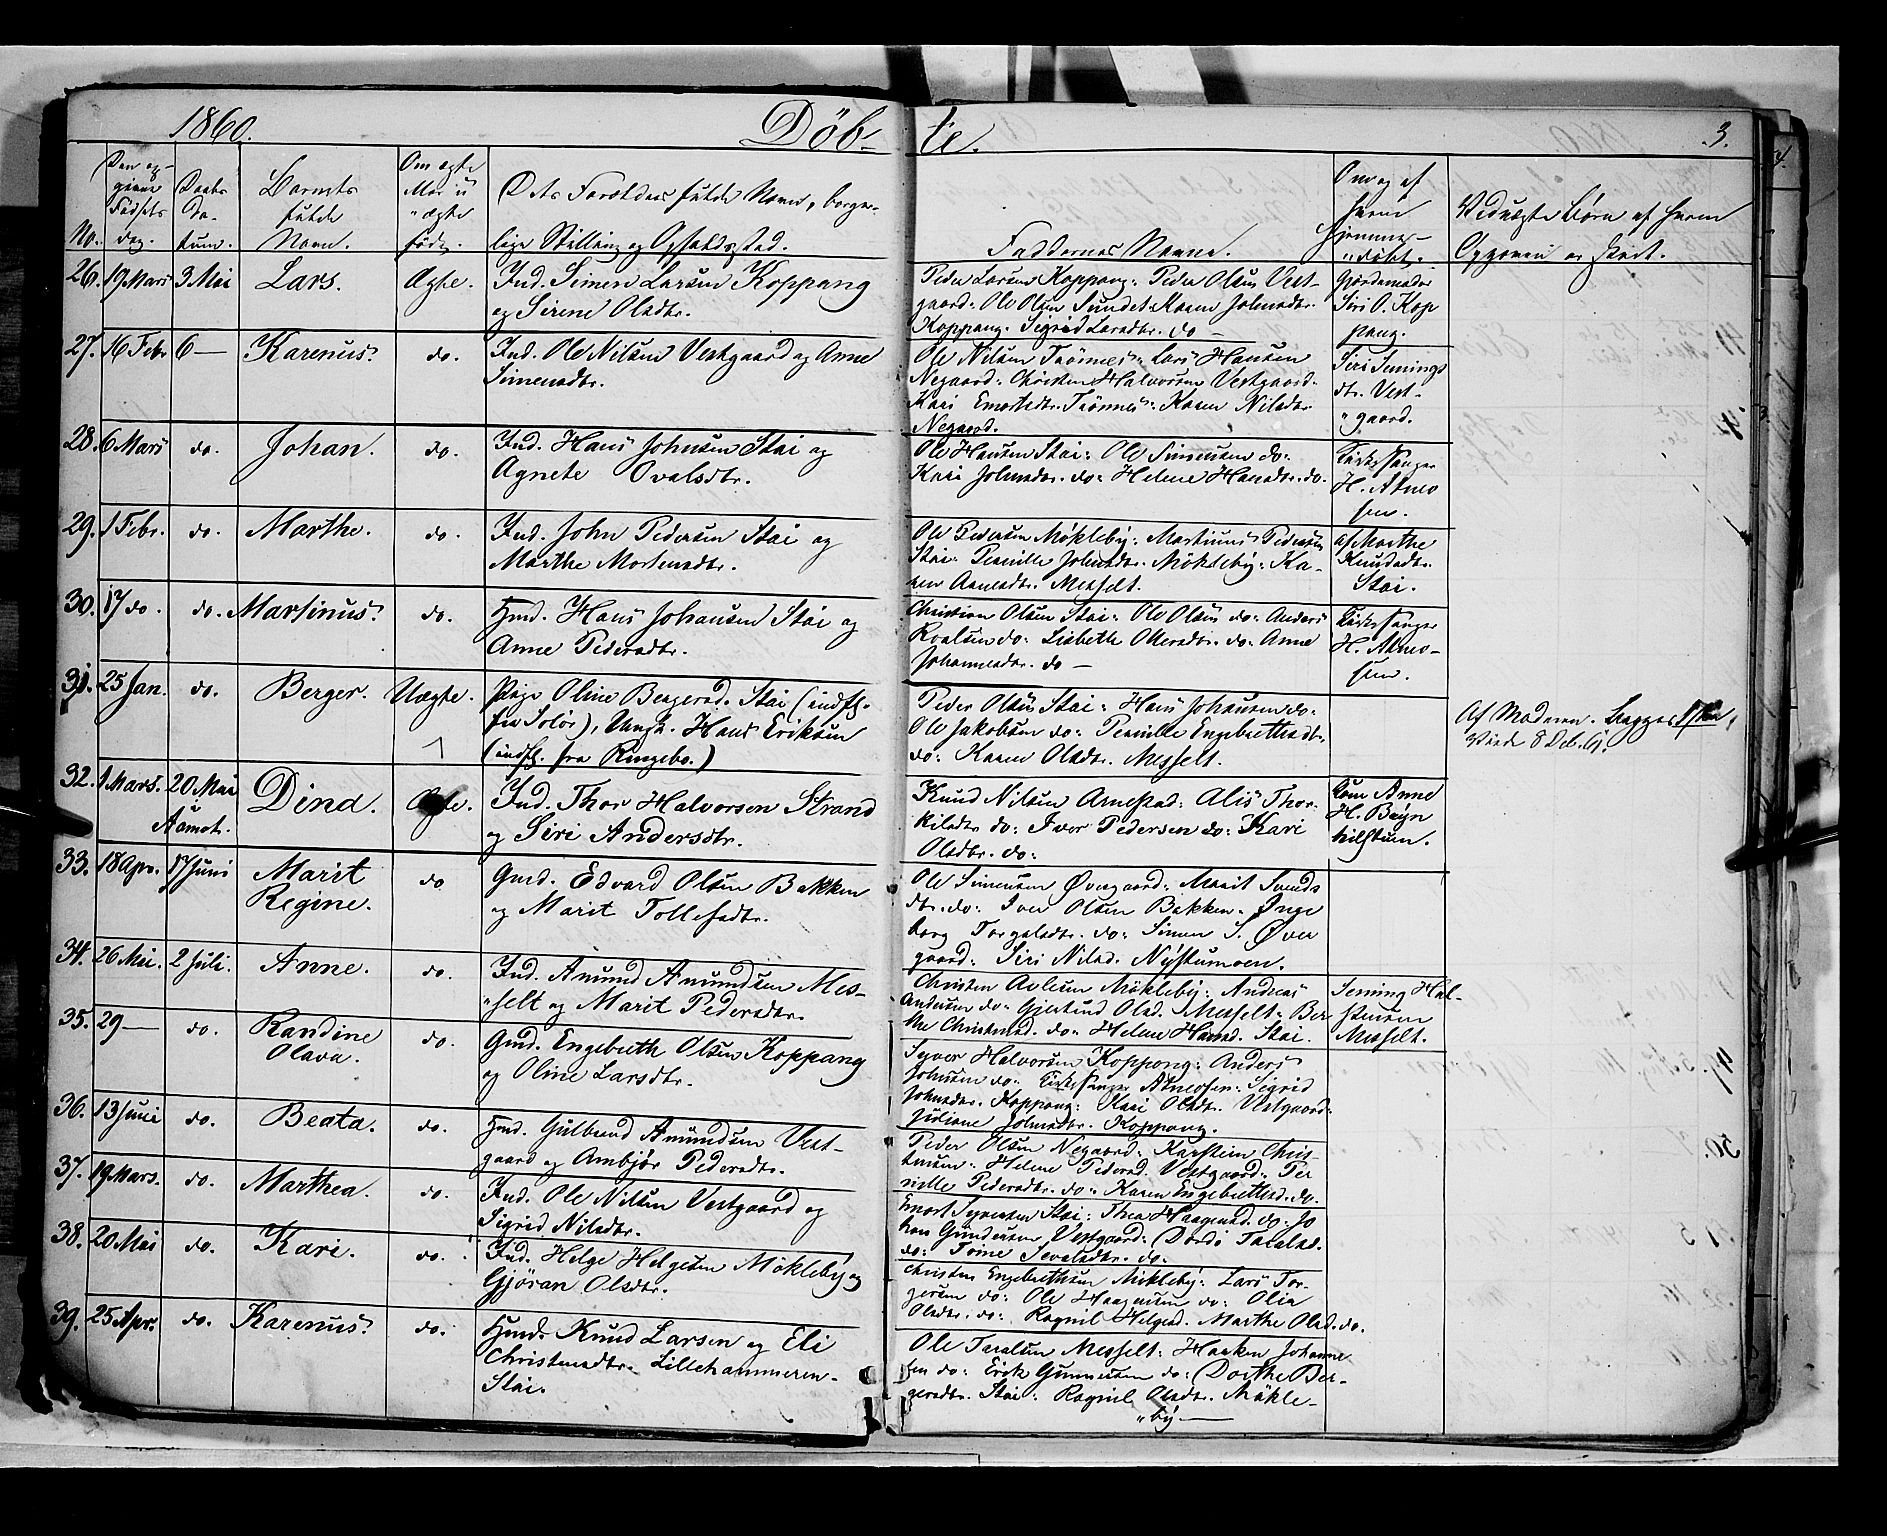 1860. Døb- te. 3.
No. Den op- givne Fødsels dag. Daabs Da- tum. Barnets fulde Navn. Om ægte eller u- ægte født. Dets Forældres fulde Navn, borger- lige Stilling og Opholdssted. Faddernes Navne. Om og af hvem hjemme- døbt. Ved uægte Børn af hvem Opgaven er skeet.
26. 19 Mars 3 Mai Lars. Ægte. Ind. Simen Larsen Koppang
og Sirene Olsdtr.
Peder Larsen Koppang: Peder Olsen Vest-
gaard: Ole Olsen Sundet: Karen Johnsdtr.
Koppang: Sigrid Larsdtr. do —
Gjordemoder
Siri O. Kop
pang.
27. 16 Febr. 6 — Karenus. do. Ind. Ole Nilsen Vestgaard og Anne
Simensdtr.
Ole Nilsen Trønnes: Lars Hansen
Negaard: Christen Halvorsen Vestgaard:
Kari Emortsdtr. Trønnes: Karen Nilsdtr.
Negaard.
Siri Semings
dtr. Vest-
gaard.
28. 6 Mars do. Johan. do. Ind. Hans Johnsen Stai og
Agnete Ovalsdtr.
Ole Hansen Stai: Ole Simensen do:
Kari Johnsdtr. do: Helene Hansdtr. do.
Kirkesanger
H. Atneo
sen.
29. 1 Febr. do. Marthe. do. Ind. John Pedersen Stai og
Marthe Mortensdtr.
Ole Pedersen Møkleby: Martinus Pedersen
Stai: Pernille Johnsdtr. Møkleby: Ka-
ren Arnesdtr. Messelt.
af Marthe
Knudsdtr.
Stai.
30. 17 do. do. Martinus. do. Hmd. Hans Johansen Stai og
Anne Pedersdtr.
Christian Olsen Stai: Ole Olsen do: Anders
Roalsen do: Lisbeth Olsdtr. do: Anne
Johannesdtr. do —
Kirkesanger
H. Atneo-
sen.
31. 25 Jan. do. Berger. Uægte. Pige Oline Bergersd. Stai (indfl.
fra Solør), Ungk. Hans Eriksen
(indfl. fra Ringebo.)
Peder Olsen Stai: Hans Johansen do:
Ole Jakobsen do: Pernille Engebrethsdtr.
do: Karen Olsdtr. Messelt.
Af Moderen.
32. 1 Mars. 20 Mai Aamot. Dina. Ægte. Ind. Thor Halvorsen Strand
og Siri Andersdtr.
Knud Nilsen Arnestad: Alis Thor-
kilsdtr do: Iver Pedersen do: Kari
Olsdtr. do:
Kone Anne
H. Bryn
hilstuen.
33. 18 Apr. 17 Juni Marit
Regine. do Gmd. Edvard Olsen Bakken
og Marit Tollefsdtr.
Ole Simensen Øvergaard: Marit Svends
dtr. do: Iver Olsen Bakken: Inge
borg Torgalsdtr. do: Simen S. Øver
gaard: Siri Nilsd. Nystumoen.
34. 26 Mai. 2 Juli. Anne. do. Ind. Amund Amundsen Mes-
selt og Marit Pedersdtr.
Christen Avlesen Møkleby: Andreas
Andersen do: Gjertrud Olsd. Messelt: Ber
the Christensd. do: Helene Hansd. Stai.
Seming Hal-
stensen
Messelt.
35. 29 — do. Randine
Olava. do. Gmd. Engebreth Olsen Koppang
og Oline Larsdtr.
Syver Halvorsen Koppang: Anders
Johnsen do: Kirkesanger Atneosen: Sigrid
Johnsdtr. Koppang: Kari Olsdtr. Vestgaard:
Juliane Johnsdtr. Koppang.
36. 13 Juni do. Beata. do. Hmd. Gulbrand Amundsen Vest-
gaard og Ambjør Pedersdtr.
Peder Olsen Negaard: Karstein Chris-
tensen: Helene Pedersd. Vestgaard: Per
nille Pedersdtr. do: Karen Engebrethsd. do.
37. 19 Mars. do. Marthea. do. Ind. Ole Nilsen Vestgaard og
Sigrid Nilsdtr.
Emort Syversen Stai: Thea Haagensd. do: Jo
han Gundersen Vestgaard: Dordi Taralsd.
do: Trine Sevalsdtr. do:
38. 20 Mai do. Kari. do. Ind. Helge Helgesen Møkleby og
Gjøran Olsdtr.
Christen Engebrethsen Møkleby: Lars Tor-
gersen do: Ole Haagensen do: Olia
Olsdtr. do: Ragnil Helgesd. Marthe Olsd. do.
39. 25 Apr. do. Karenus. do. Hmd. Knud Larsen og Eli
Christensdtr. Lillehammeren-
Stai.
Ole Taralsen Messelt: Haaken Johanne
sen do: Erik Gunnersen do: Dorthe Ber-
gersdtr. Stai: Ragnil Olsdtr. Møkle-
by —